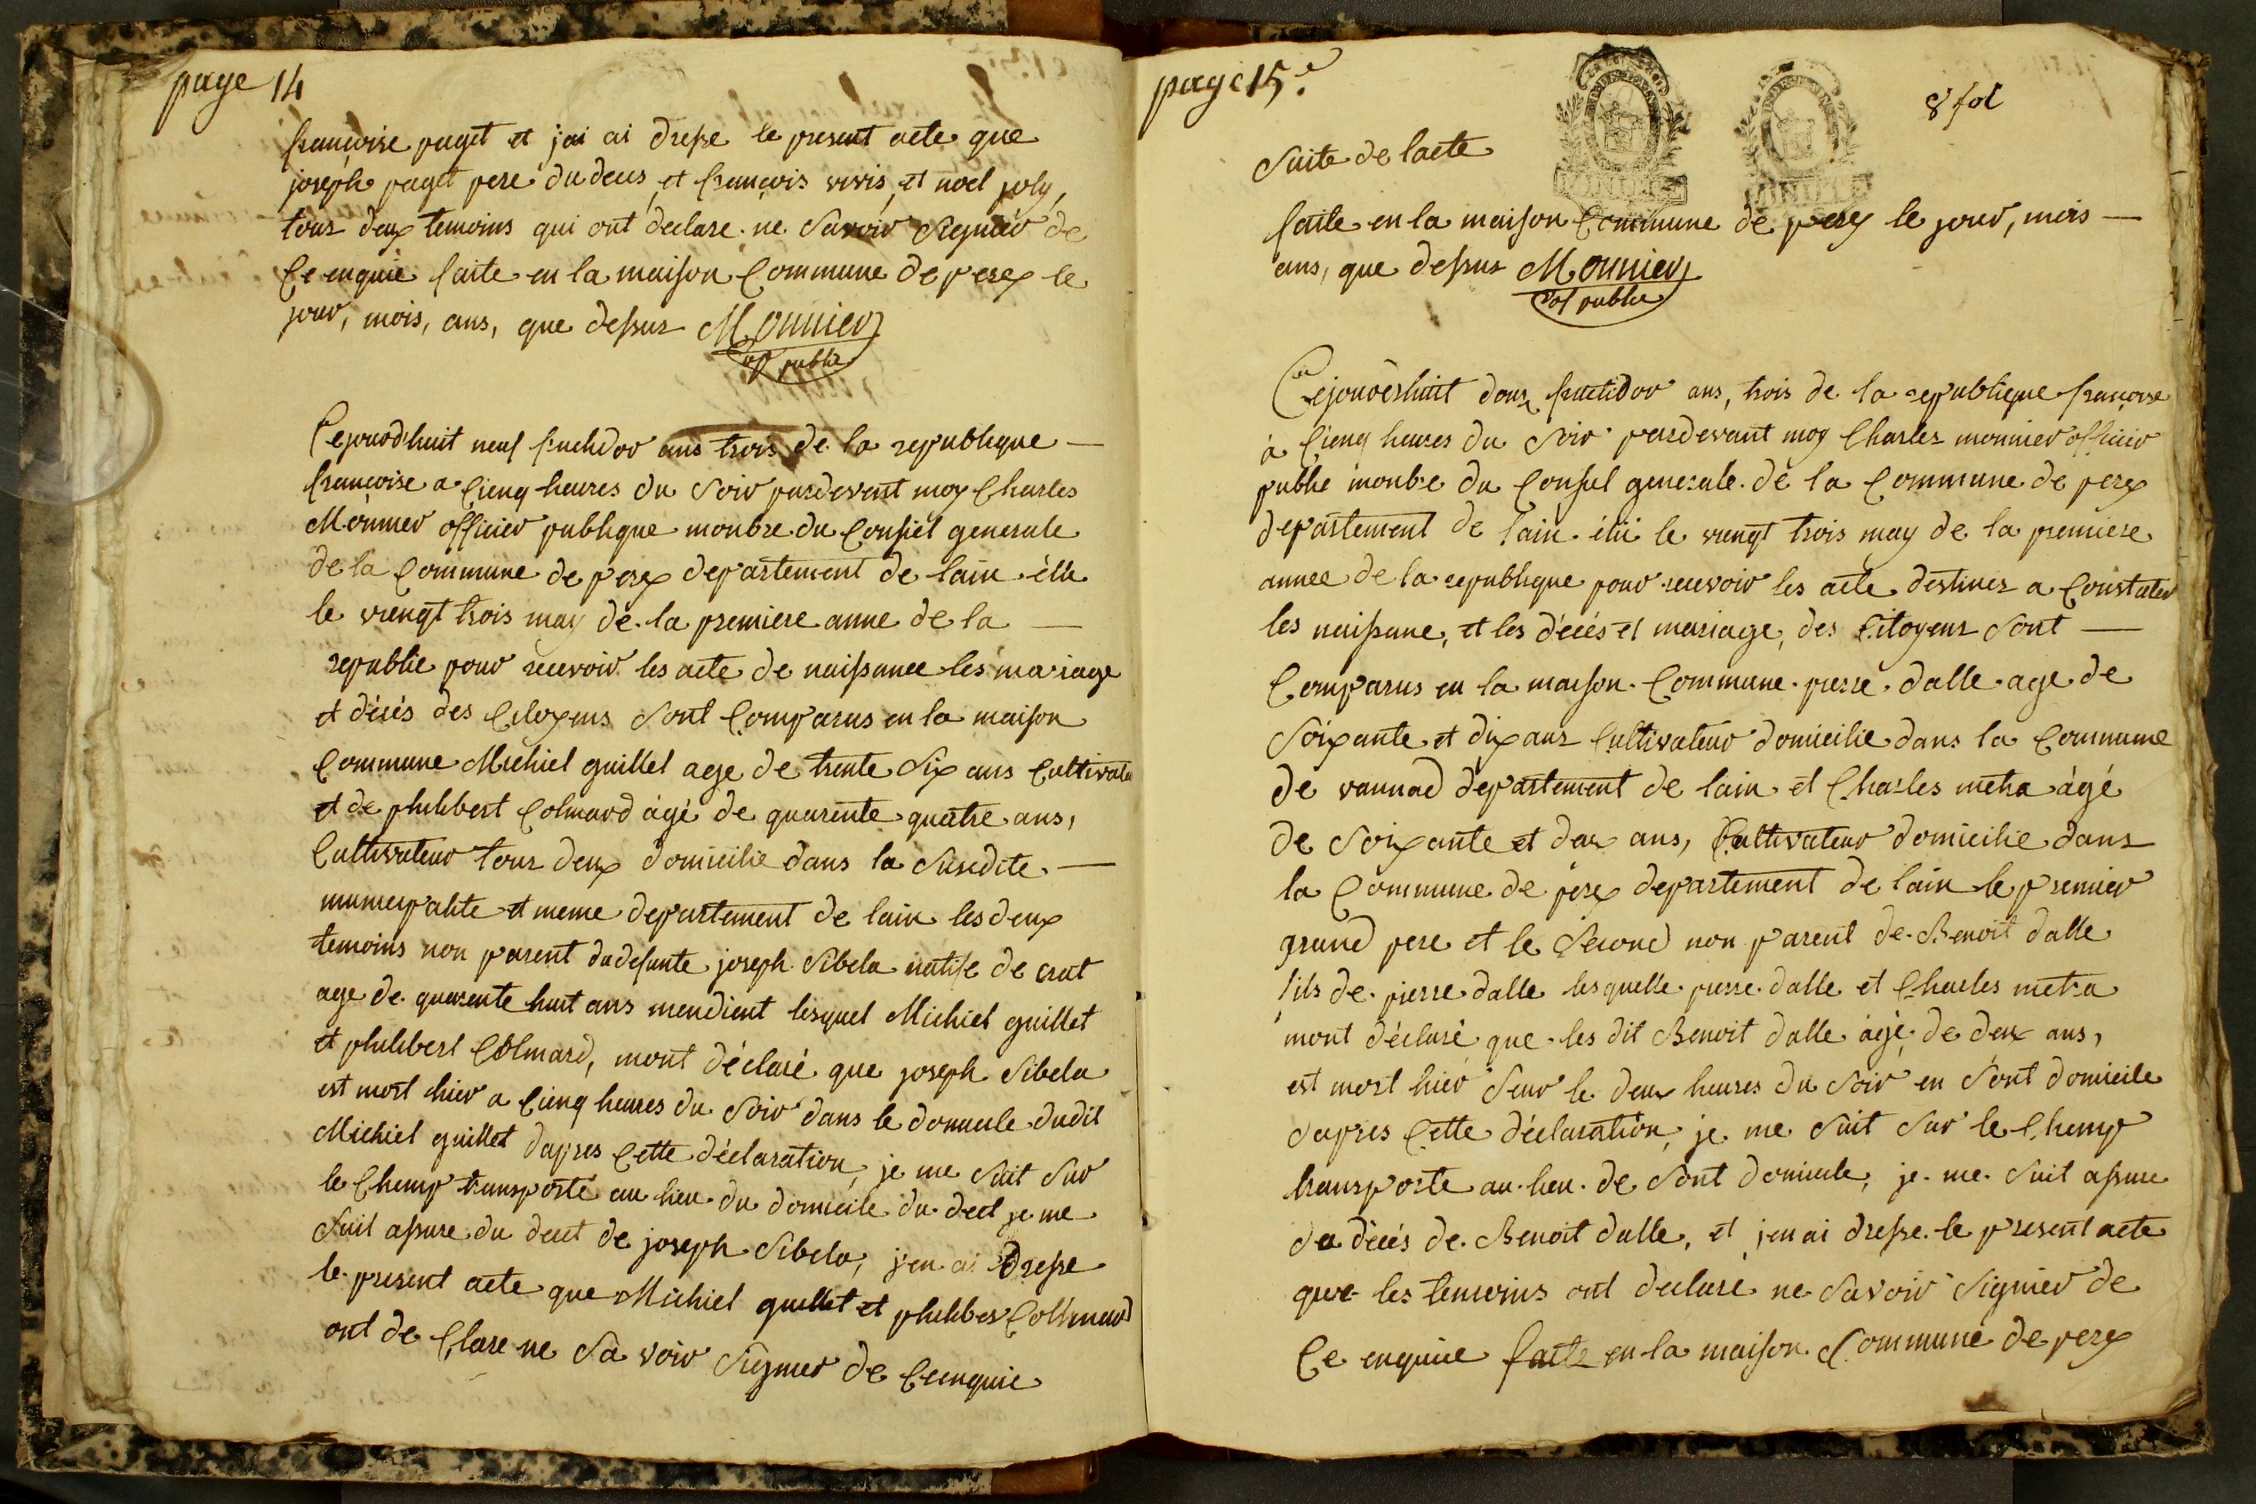 page 14
françoise paget et jai ai dresse le present acte que
joseph paget pere du deus, et françois vivis, et noel joly,
tour deux temoins qui ont declare ne savoir signiér de
Ce enquie faite en la maison Commune de perex le
jour, mois, ans, que dessus Monnier
off public
Cejourdhuit neuf fructidor ans trois de la republique
françoise a Cienq heures du soir pardevant moy Charles
Monnier officier publique monbre du Consiel generale
de la Commune de perex departement de lain élu
le viengt trois may de la premiere anne de la
republie pour recevoir les acte de naissance les mariage
et décés des Citoyens sont Comparus en la maison
Commune Michiel guillet age de trente six ans Cultivate
et de philibert Colmard àgé de quarente quatre ans,
Cultivateur tour deux domicilie dans la susdite
municipalite et meme departement de lain les deux
temoins non parent du defunte joseph sibela natife de crat
age de quarente huit ans mendient lesquel Michiel guillet
et philibert Colmard, mont déclaré que joseph Sibela
est mort hier a Cienq heures du soir dans le domicile dudit
Michiel guillet dapres Cette déclaration, je me suit sur
le Champ transporté au lieu du domicile du dect je me
suit assure du decet de joseph sibela, j'en ai dresse
le present acte que Michiel guillet et philiber Collmard
ont de Clare ne sa voir signier de Ceenquie
page 15e.
8 fol
suite de lacte
faite en la maison Commune de perex le jour, mois
ans, que dessus Monnier
of public
Cejourdshuit douz fructidor ans, trois de la republique françoise
à Cienq heures du soir pardevant moy Charles monnier officier
publie monbre du Consiel generale de la Commune de perex
departement de lain élu le viengt trois may de la premiere
annee de la republique pour recevoir les acte destinez a Constater
les naissane, et les décés et mariage, des Citoyens sont
Comparus en la maison Commune pierre dalle age de
soixante et dix ans Cultivateur domicilie dans la Commune
de vannad departement de lain et Charles metra àgé
de soixante et deux ans, Cultivateur domicilie dans
la Commune de perex departement de lain le premier
grand pere et le second non parent de Benoit dalle
fils de pierre dalle lesquelle pierre dalle et Charles metra
mont déclaré que les dit Benoit dalle àgé de deux ans,
est mort hier seur le deux heures du soir en sont domicile
dapres Cette déclaration, je me suit sur le Champ
transporte au lieu de sont domicile, je me suit assure
du décés de Benoit dalle, et jen ai dresse le present acte
que les temoins ont declaré ne savoir signier de
Ce enquie faite en la maison Commune de perex